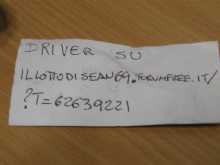 DRIVER SU
ILLOTTODISEAN69.FORUMFREE.IT/
?T=62639221